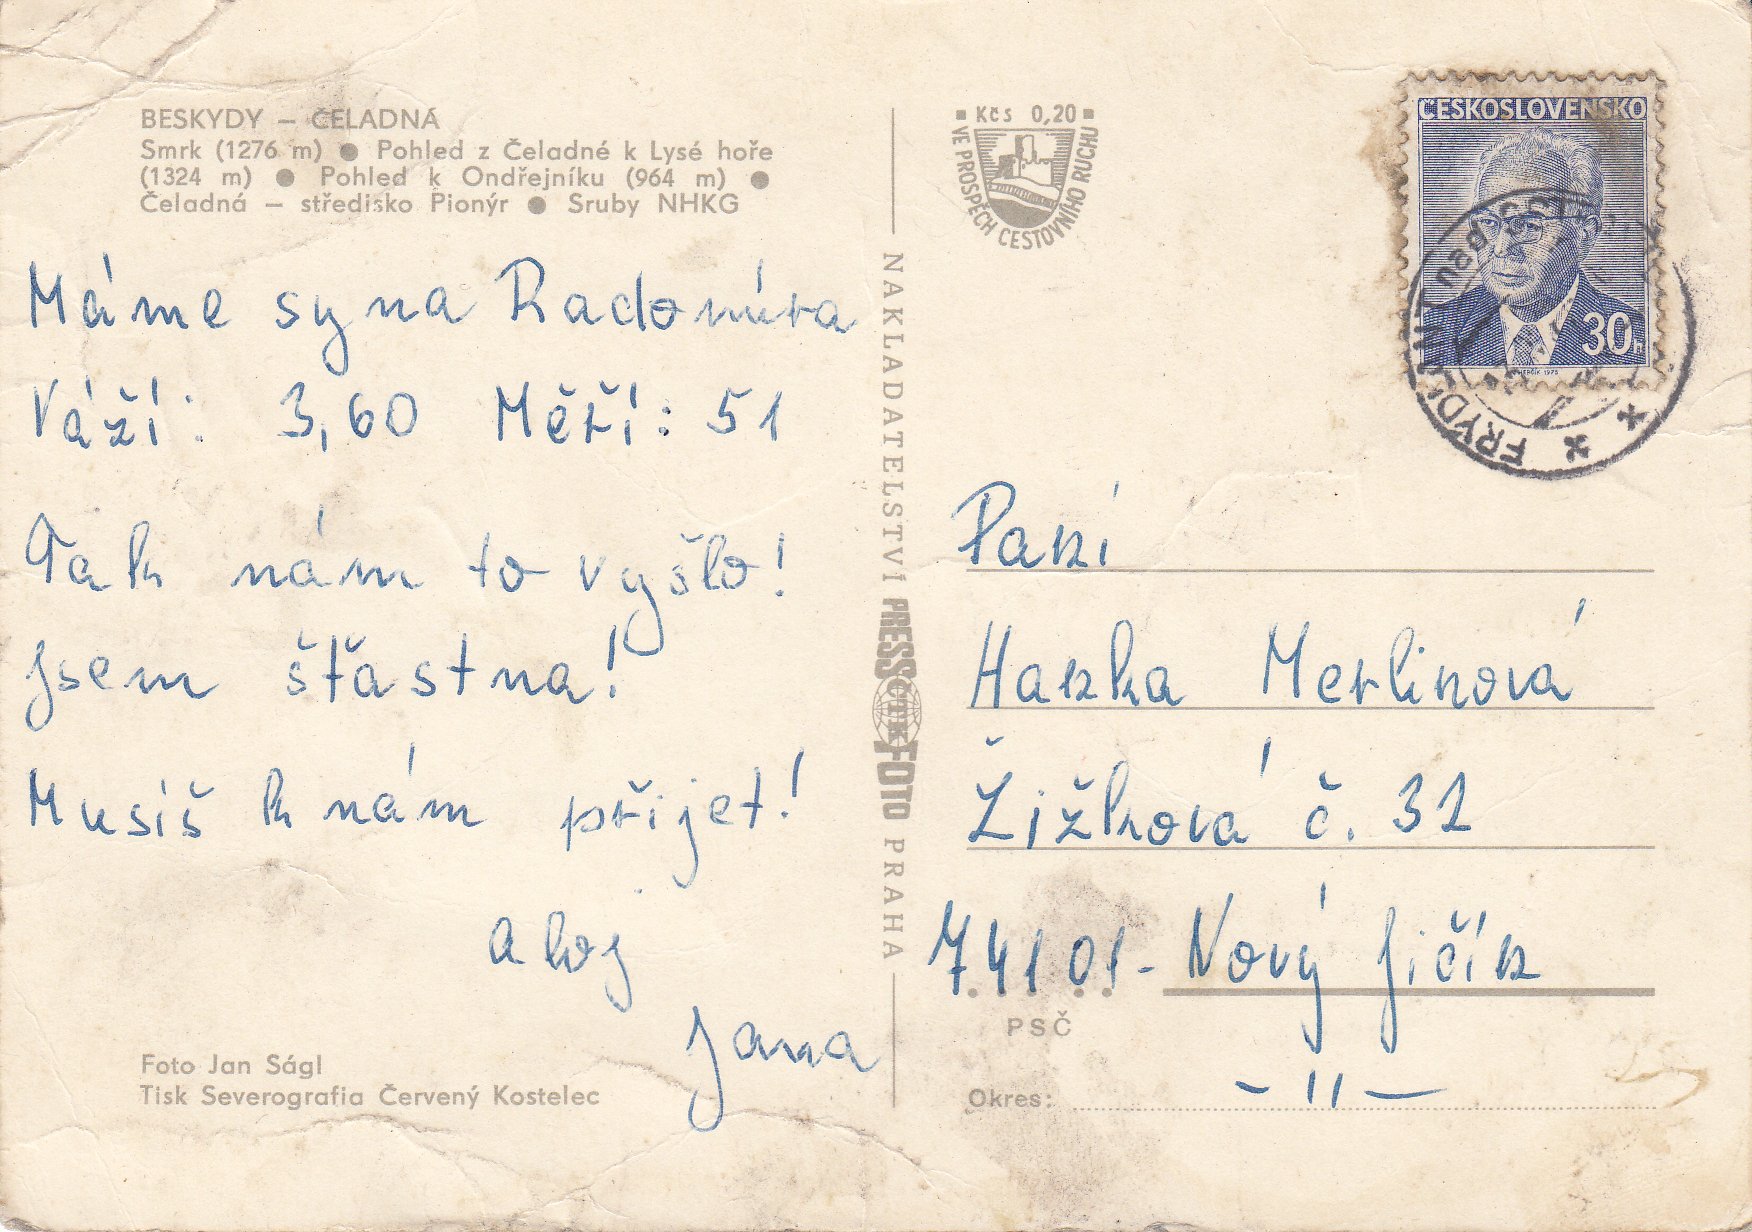 BESKYDY – ČELADNÁ
Smrk (1276 m) ● Pohled z Čeladné k Lysé hoře
(1324 m) ● Pohled k Ondřejníku (964 m) ●
Čeladná – středisko Pionýr ● Sruby NHKG
Máme syna Radomíra
Váží: 3,60 Měří: 51
Tak nám to vyšlo!
Jsem šťastna!
Musíš k nám přijet!
Ahoj
Jana
Foto Jan Ságl
Tisk Severografia Červený Kostelec
NAKLADATELSTVÍ PRESSFOTO PRAHA
ČTK
Kčs 0,20
VE PROSPĚCH CESTOVNÍHO RUCHU
ČESKOSLOVENSKO
30h
nad
FRÝD
Paní
Hanka Merlinová
Žižková č. 32
74101 - Nový Jičín
PSČ
Okres: - 11 -